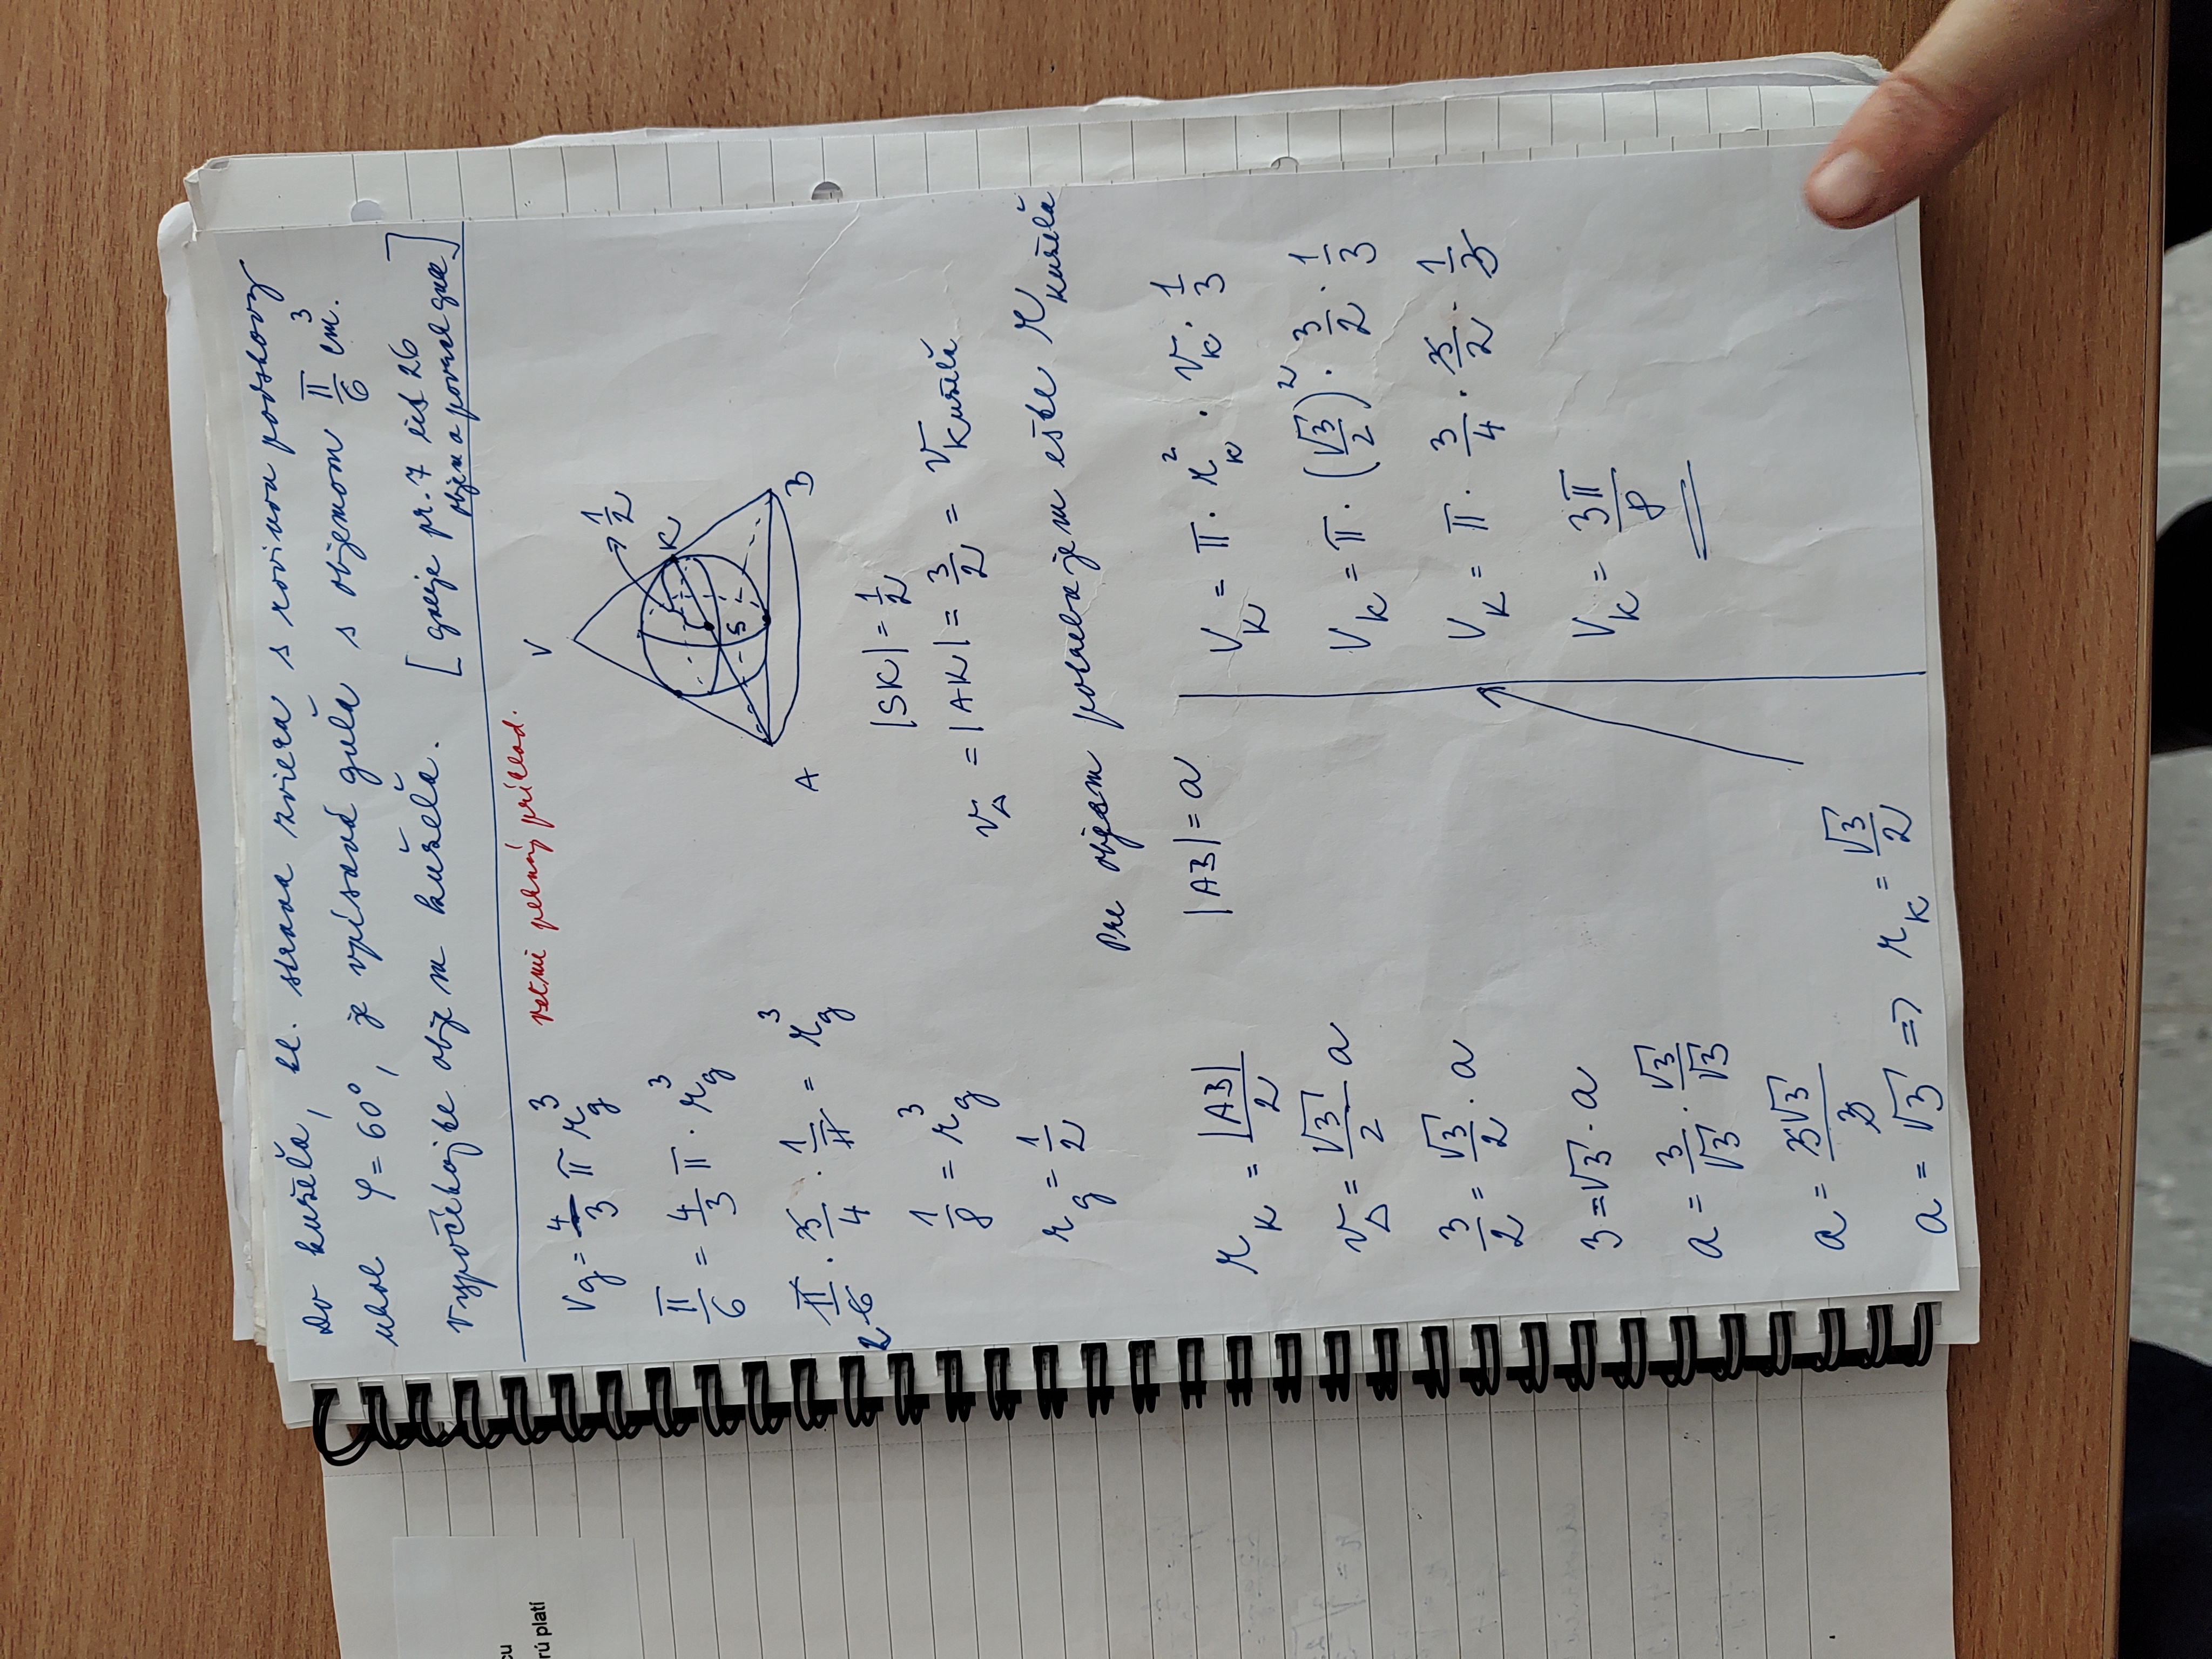 Do kužeľa, kt. strana zviera s rovinou podstavy
uhol φ = 60°, je vpísaná guľa s objemom π/6 cm³.
Vypočítajte objem kužeľa.
[ pr. 7 čís 26
objem a povrch ]
veľmi pekný príklad.
V_g = 4/3 π r_g³
π/6 = 4/3 π · r_g³
π/6 · 3/4 · 1/π = r_g³
2
1/8 = r_g³
r_g = 1/2
V
1/2
K
S
A
B
|SK| = 1/2
v_Δ = |AK| = 3/2 = v_kužeľa
Pre objem potrebujem ešte r_kužeľa
r_k = |AB|/2
|AB| = a
v_Δ = √3/2 a
3/2 = √3/2 · a
3 = √3 · a
a = 3/√3 · √3/√3
a = 3√3/3
a = √3 => r_k = √3/2
V_k = π · r_k² · v_k · 1/3
V_k = π · (√3/2)² · 3/2 · 1/3
V_k = π · 3/4 · 3/2 · 1/3
V_k = 3π/8
cu
rú platí